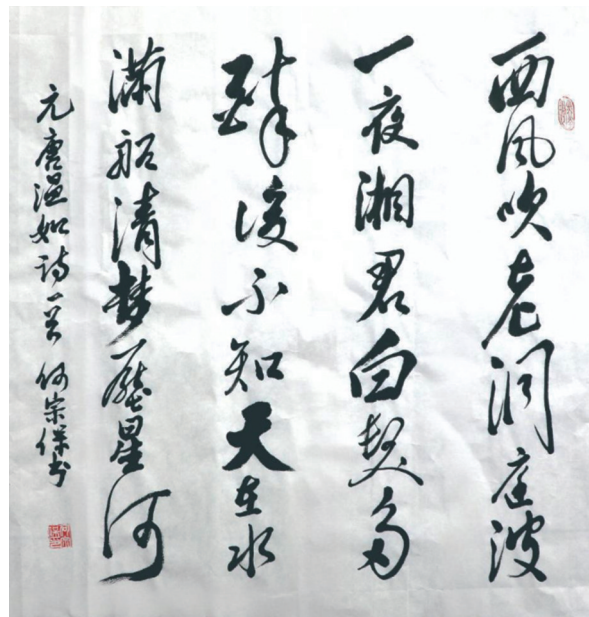 西风吹老洞庭波
一夜湘君白髮多
醉後不知天在水
滿船清梦壓星河
元唐温如诗一首 何崇保书